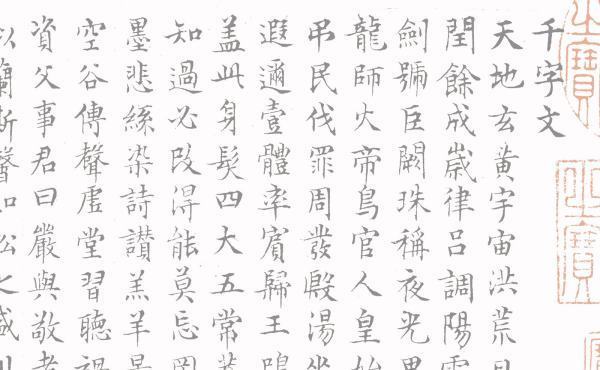 千字文
天地玄黃宇宙洪荒日
閏餘成歲律呂調陽雲
劍號巨闕珠稱夜光果
龍師火帝鳥官人皇始
吊民伐罪周發殷湯坐
遐邇壹體率賓歸王鳴
盖此身髮四大五常恭
知過必改得能莫忘罔
墨悲絲染詩讃羔羊景
空谷傳聲虛堂習聽禍
資父事君曰嚴與敬孝
似蘭斯馨如松之盛川